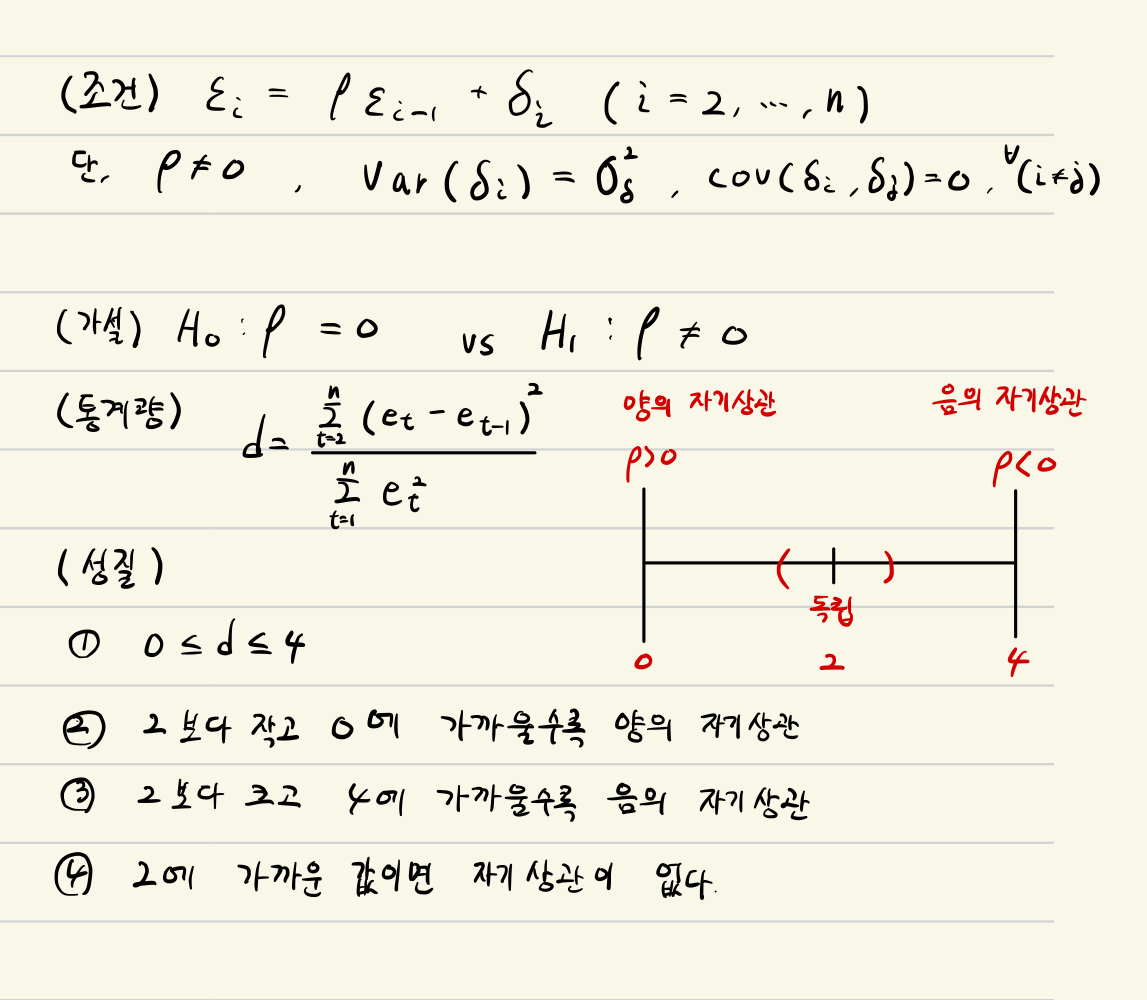 (조건) εᵢ = ρ εᵢ₋₁ + δᵢ (i = 2, ⋯, n)
단, ρ ≠ 0, Var(δᵢ) = σ_δ², cov(δᵢ, δⱼ) = 0, ∀(i≠j)
(가설) H₀ : ρ = 0 vs H₁ : ρ ≠ 0
(통계량) d = Σ_{t=2}^{n} (e_t - e_{t-1})² / Σ_{t=1}^{n} e_t²
양의 자기상관 음의 자기상관
ρ>0 ρ<0
( )
독립
0 2 4
(성질)
① 0 ≤ d ≤ 4
② 2보다 작고 0에 가까울수록 양의 자기상관
③ 2보다 크고 4에 가까울수록 음의 자기상관
④ 2에 가까운 값이면 자기상관이 없다.